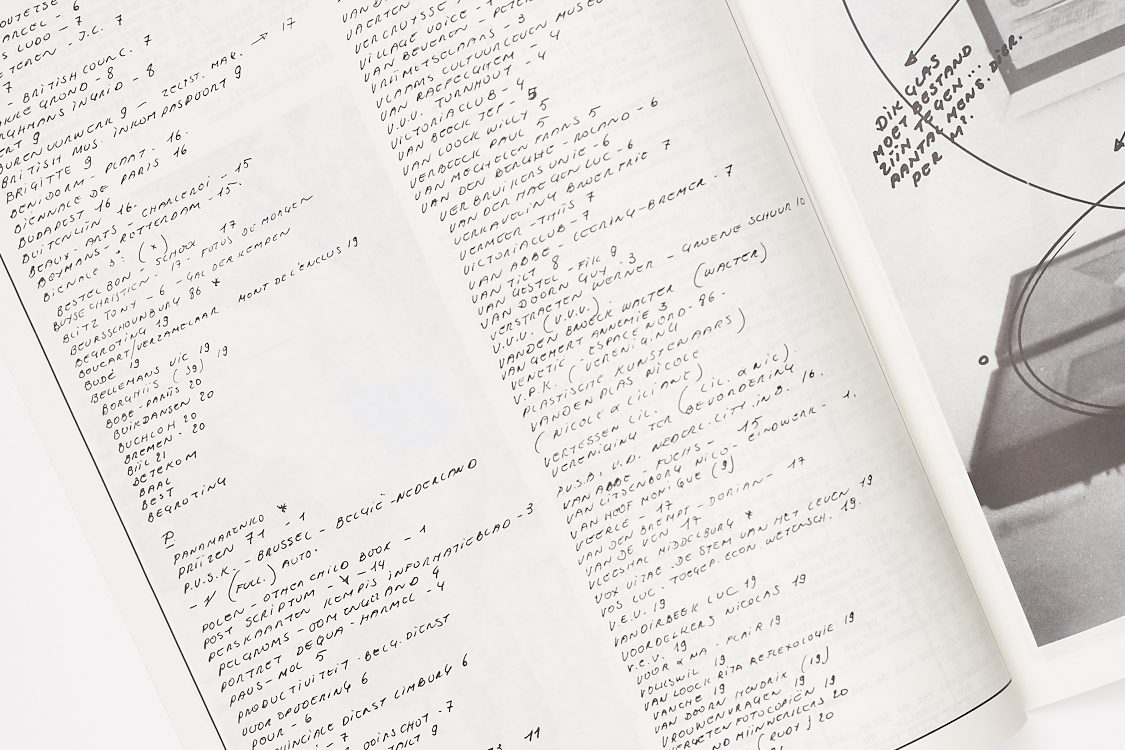 ARCEL - 6
LUDO - 7
TEREN - J.C. 7
7
- BRITISH COUNC. 7
GROND - 8
INGRID - 8
BUREN VUURWERK 9 - ZELST. MAR. → 17
BRITISH MUS. INKOM PASPOORT 9
BRIGITTE 9
BENIDORM - PLAAT. 16.
BIENNALE DE PARIS 16
BUDAPEST 16
BUITENLIJN 16.
BEAUX-ARTS - CHARLEROI - 15
BOYMANS - ROTTERDAM - 15.
BIENALE 3: (X)
BESTELBON - SCHOXX 17
BUYSE CHRISTIEN - 17 - FOTOS DE MORGEN
BLITZ TONY - 6 - GAL DER KEMPEN
BEURSSCHOUWBURG 86 *
BEGROTING 19
BOUCART/VERZAMELAAR. MONT DE L'ENCLUS 19
BUDÉ 19
BELLEMANS VIC 19
BORGHIJS (19) 19
BOBE - PARIJS 20
BUIKDANSEN 20
BUCHLOH 20
BREMEN - 20
BIJL 21
BETEKOM
BAAL
BEST
BEGROTING
P
PANAMARENKO *
PRIJZEN 71 - 1
P.V.S.K. - BRUSSEL - BELGIË - NEDERLAND
- 1/ (FULL.) AUTO.
POLEN - OTHER CHILD BOOK - 1
POST SCRIPTUM - 14
PERSKAARTEN KEMPIS INFORMATIEBLAD - 3
PELGROMS - OOM ENGELAND 4
PORTRET DEQUA - HARMEL - 4
PAUS - MOL 5
PRODUCTIVITEIT - BELG. DIENST
VOOR OPVOERING 6
POUR - 6
PROVINCIALE DIENST LIMBURG 6
- 7
OOIRSCHOT - 7
9
11
VAERTEN
VERCRUYSSE
VILLAGE VOICE - 7
VAN BEVEREN - PETER
VRIJMETSELAARS - 3
VLAAMS CULTUURLEVEN MUSEU
VAN RAFELGHEM - 4
V.U.U. TURNHOUT - 4
VICTORIA CLUB - 4
VAN BEECK JEF - 5
VAN LOOCK WILLY 5
VERBEECK PAUL 5
VAN MECHELEN FRANS 5
VAN DEN BERGHE - ROLAND - 6
VERBRUIKERSUNIE - 6
VAN DER HAEGEN LUC - 6
VERKAVELING BROER FRIE 7
VERMEER - THIJS 7
VICTORIACLUB - 7
VAN ABBE - LEERING - BREMER - 7
VAN TILT 8
VAN GESTEL - FIK 9
VAN DOORN GUY - 3
VERSTRAETEN WERNER - GROENE SCHUUR 10
V.U.U. (V.V.V.)
VANDEN BROECK WALTER (WALTER)
VAN GEMERT ANNEMIE 3
VENETIE - ESPACE NORD - 86.
V.P.K. (VERENIGING
PLASTISCHE KUNSTENAARS)
VANDENPLAS NICOLE
(NICOLE & LILIANE)
VERTESSEN LIL. (LIL. & NIC).
VERENIGING TER BEVORDERING
P.V.S.B. V.D. NEDERL. LITH. IND. 16.
VAN ABBE - FUCHS - 15
VAN LITSENBORG NICO - EINDWERK - 1.
VAN HOOF MONIQUE (9)
VEERLE - 17
VAN DEN BREMPT - DORIAN - 17
VAN DE VEN 17
VLEESHAL MIDDELBURG *
VOX VITAE - DE STEM VAN HET LEVEN 19
VOS LUC - TOEGEP. ECON. WETENSCH. 19.
V.E.V. 19
VANDIRBEEK LUC 19
VOORDECKERS NICOLAS 19
V.E.V. 19
VOOR & NA - FLAIR 19
VOLKSWIL 19
VAN LOOCK RITA REFLEXOLOGIE 19
VANCHE 19
VAN DOORN HENDRIK (19)
VROUWENVRAGEN 19
VERGETEN FOTOCOPIËN 19
MIJNWERKERS 20
(RUDY) 20
DIK GLAS
MOET BESTAND
ZIJN TEGEN ...
AANTAL MENS. DIER.
PER M².